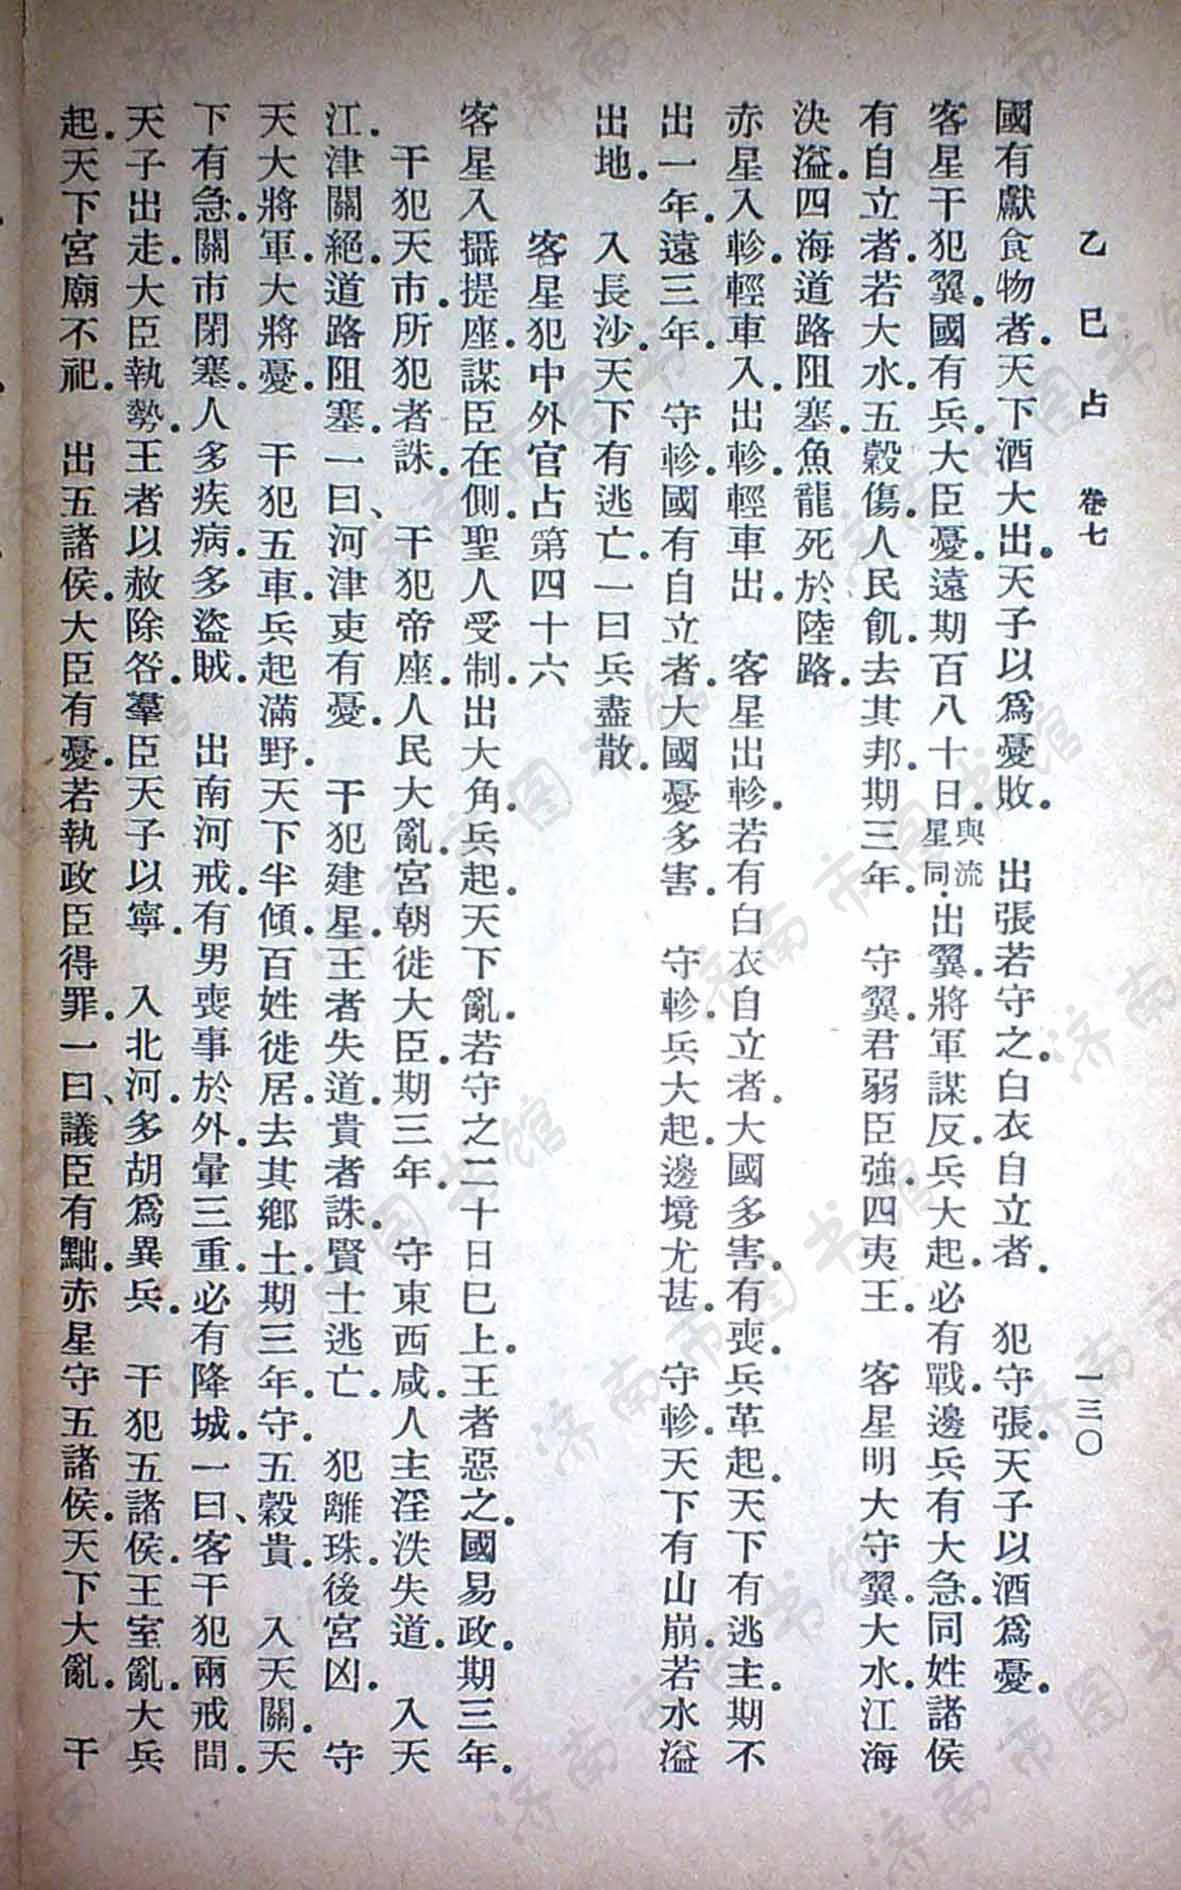 乙巳占 卷七 一三〇
國有獻食物者．天下酒大出．天子以爲憂敗． 出張若守之．白衣自立者． 犯守張．天子以酒爲憂．
客星干犯翼．國有兵．大臣憂．遠期百八十日．與流星同．出翼．將軍謀反．兵大起．必有戰．邊兵有大急．同姓諸侯
有自立者．若大水．五穀傷．人民飢．去其邦．期三年． 守翼．君弱臣強．四夷王． 客星明大守翼．大水．江海
決溢．四海道路阻塞．魚龍死於陸路．
赤星入軫．輕車入．出軫．輕車出． 客星出軫．若有白衣自立者．大國多害．有喪．兵革起．天下有逃主．期不
出一年．遠三年． 守軫．國有自立者．大國憂多害． 守軫．兵大起．邊境尤甚． 守軫．天下有山崩．若水溢
出地． 入長沙．天下有逃亡．一曰兵盡散．
客星犯中外官占第四十六
客星入攝提座．謀臣在側．聖人受制．出大角．兵起．天下亂．若守之二十日巳上．王者惡之．國易政．期三年．
干犯天市．所犯者誅． 干犯帝座．人民大亂．宮朝徙大臣．期三年． 守東西咸．人主淫泆失道． 入天
江．津關絕．道路阻塞．一曰、河津吏有憂． 干犯建星．王者失道．貴者誅．賢士逃亡． 犯離珠．後宮凶． 守
天大將軍．大將憂． 干犯五車．兵起滿野．天下半傾．百姓徙居．去其鄉土．期三年．守．五穀貴． 入天關．天
下有急．關市閉塞．人多疾病．多盜賊． 出南河戒．有男喪事於外．暈三重．必有降城．一曰、客干犯兩戒間．
天子出走．大臣執勢．王者以赦除咎．羣臣天子以寧． 入北河．多胡爲異兵． 干犯五諸侯．王室亂．大兵
起．天下宮廟不祀． 出五諸侯．大臣有憂．若執政臣得罪．一曰、議臣有黜．赤星守五諸侯．天下大亂． 干